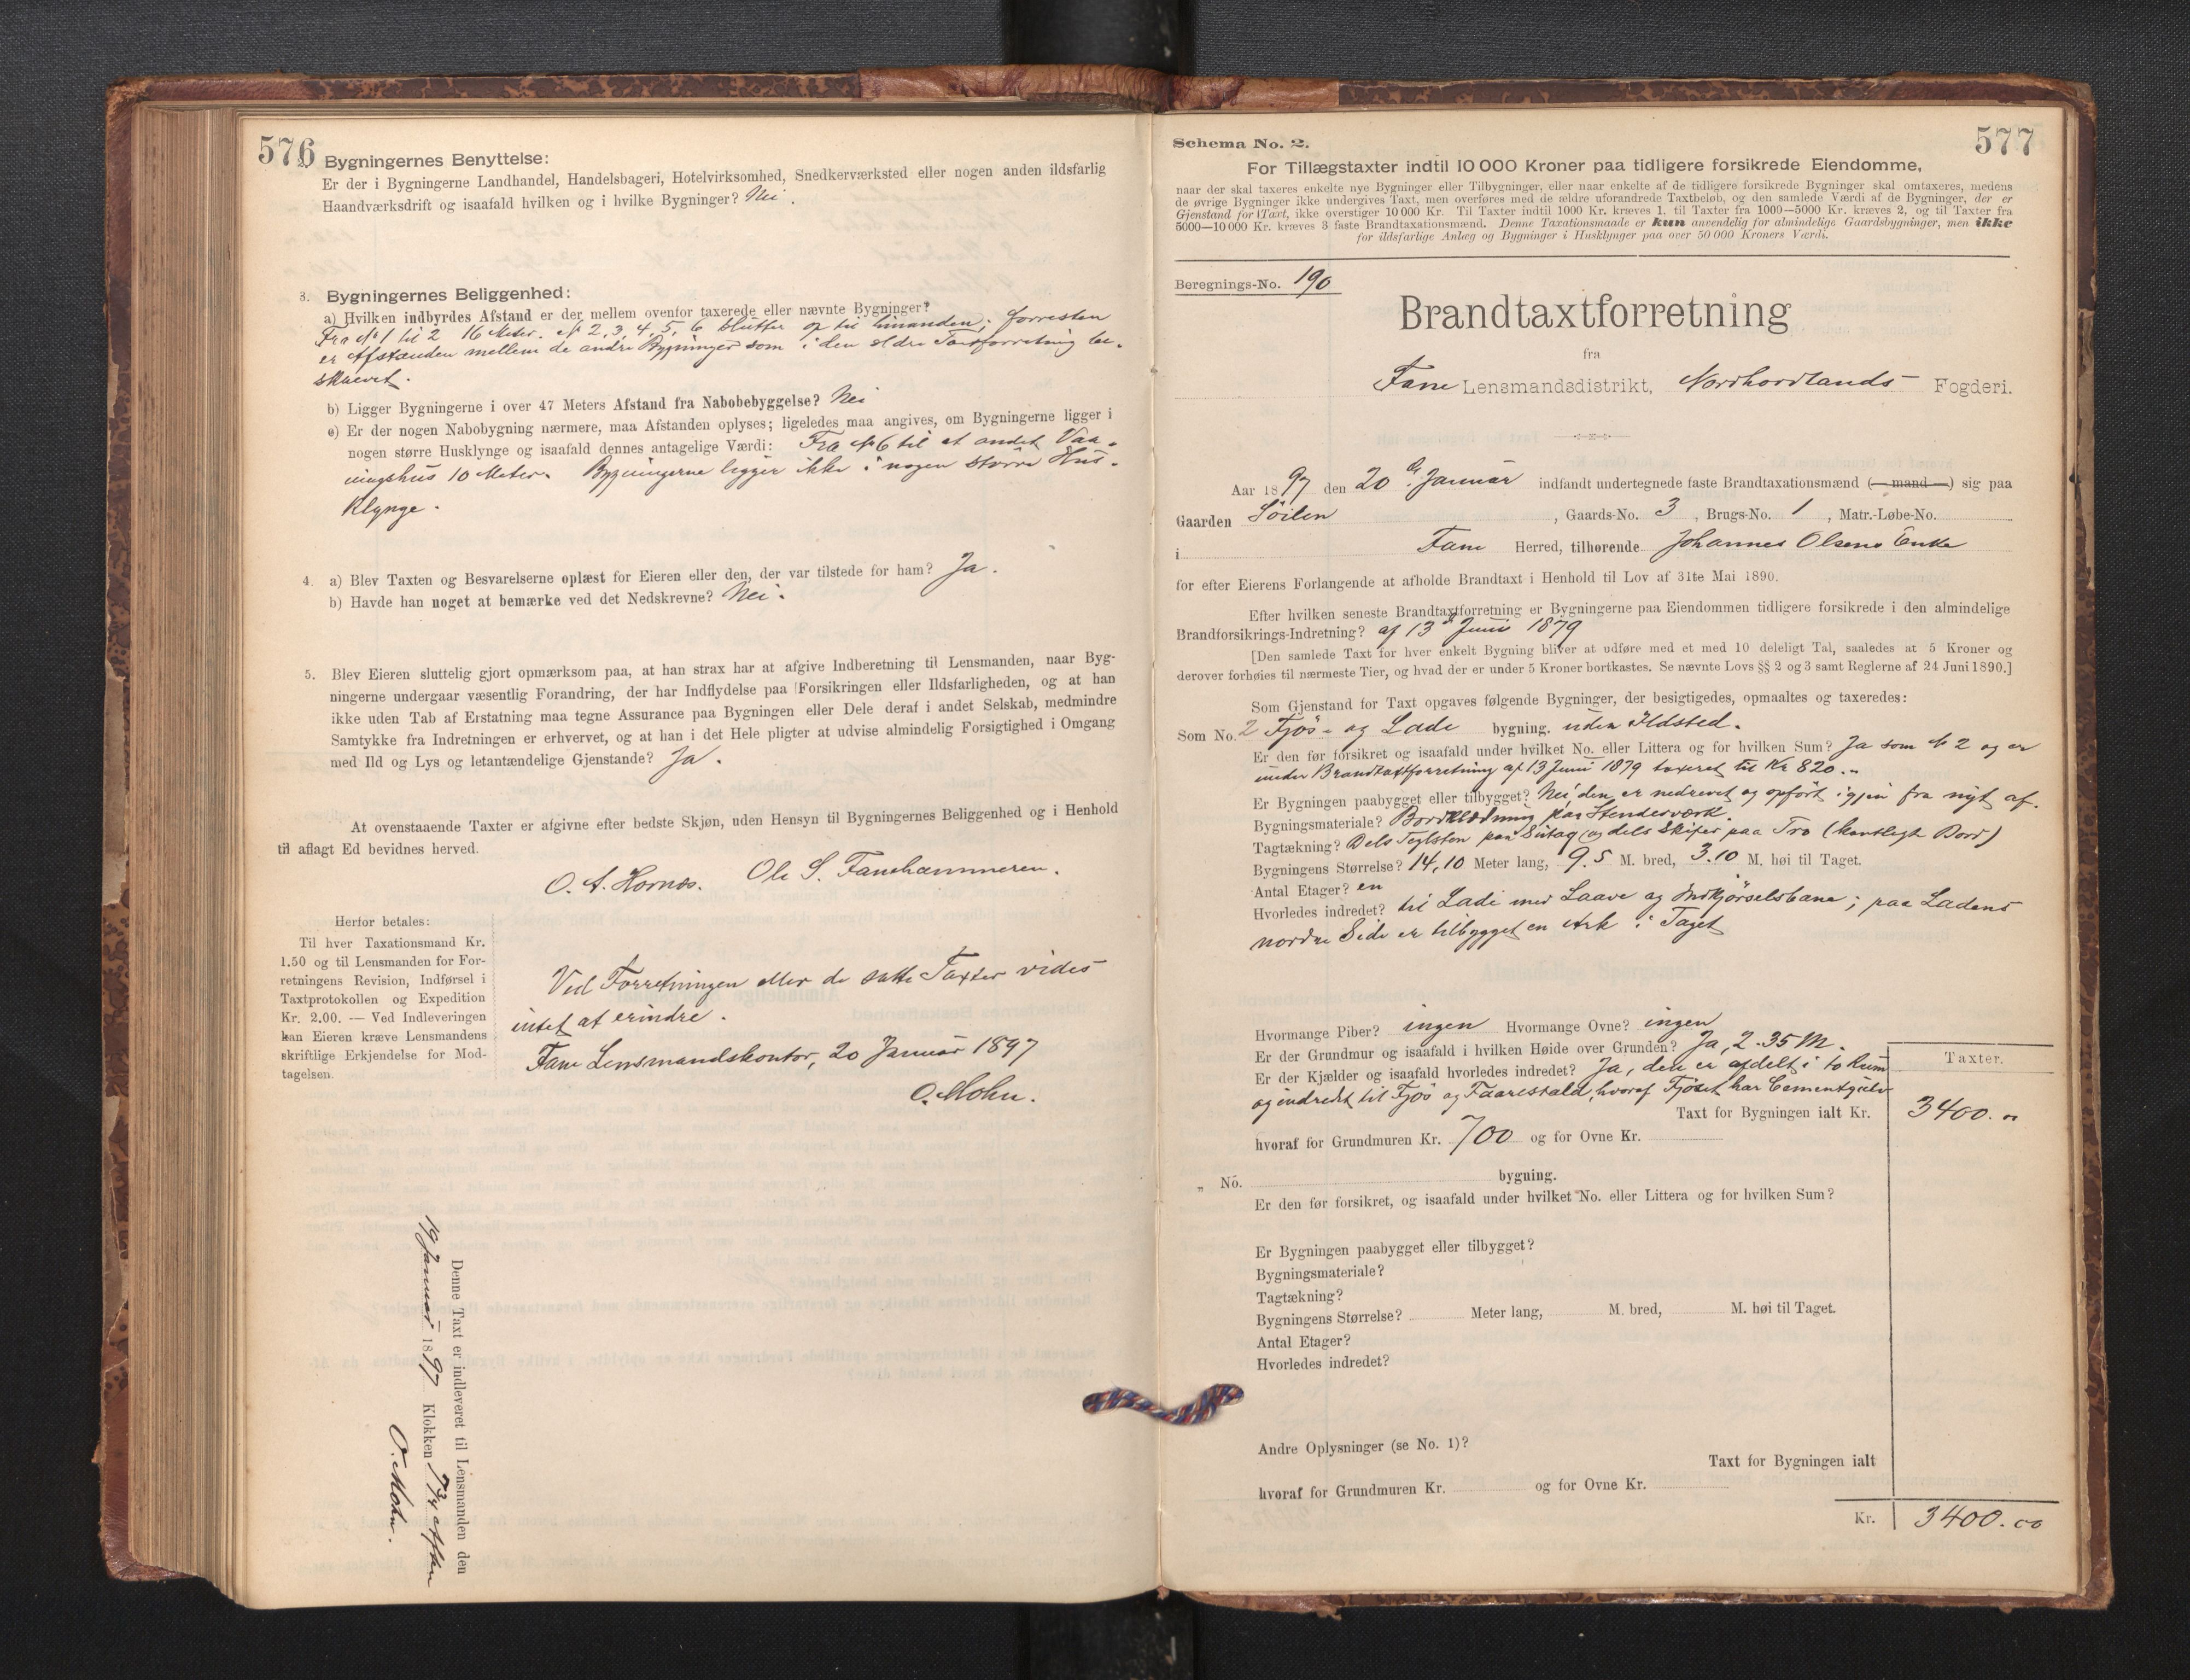 576
Bygningernes Benyttelse:
Er der i Bygningerne Landhandel, Handelsbageri, Hotelvirksomhed, Snedkerværksted eller nogen anden ildsfarlig
Haandværksdrift og isaafald hvilken og i hvilke Bygninger? Nei.
3. Bygningernes Beliggenhed:
a) Hvilken indbyrdes Afstand er der mellem ovenfor taxerede eller nævnte Bygninger?
Fra № 1 til 2 16 Meter. № 2, 3, 4, 5, 6 slutter op til hinanden; forresten
er Afstanden mellem de andre Bygninger som i den ældre Taxtforretning be-
skrevet.
b) Ligger Bygningerne i over 47 Meters Afstand fra Nabobebyggelse? Nei
c) Er der nogen Nabobygning nærmere, maa Afstanden oplyses; ligeledes maa angives, om Bygningerne ligger i
nogen større Husklynge og isaafald dennes antagelige Værdi: Fra № 6 til et andet Vaa-
ningshus 10 Meter. Bygningerne ligger ikke i nogen større Hus-
klynge.
4. a) Blev Taxten og Besvarelserne oplæst for Eieren eller den, der var tilstede for ham? Ja.
b) Havde han noget at bemærke ved det Nedskrevne? Nei.
5. Blev Eieren sluttelig gjort opmærksom paa, at han strax har at afgive Indberetning til Lensmanden, naar Byg-
ningerne undergaar væsentlig Forandring, der har Indflydelse paa Forsikringen eller Ildsfarligheden, og at han
ikke uden Tab af Erstatning maa tegne Assurance paa Bygningen eller Dele deraf i andet Selskab, medmindre
Samtykke fra Indretningen er erhvervet, og at han i det Hele pligter at udvise almindelig Forsigtighed i Omgang
med Ild og Lys og letantændelige Gjenstande? Ja.
At ovenstaaende Taxter er afgivne efter bedste Skjøn, uden Hensyn til Bygningernes Beliggenhed og i Henhold
til aflagt Ed bevidnes herved.
O. A. Hornæs. Ole S. Fanehammeren.
Herfor betales:
Til hver Taxationsmand Kr.
1.50 og til Lensmanden for For-
retningens Revision, Indførsel i
Taxtprotokollen og Expedition
Kr. 2.00. — Ved Indleveringen
kan Eieren kræve Lensmandens
skriftlige Erkjendelse for Mod-
tagelsen.
Ved Forretningen eller de satte Taxter vides
intet at erindre.
Fane Lensmandskontor, 20 Januar 1897
O. Mohn.
Denne Taxt er indleveret til Lensmanden den
19 Januar 1897 Klokken 7¾ Aften
O. Mohn.
577
Schema No. 2.
For Tillægstaxter indtil 10 000 Kroner paa tidligere forsikrede Eiendomme,
naar der skal taxeres enkelte nye Bygninger eller Tilbygninger, eller naar enkelte af de tidligere forsikrede Bygninger skal omtaxeres, medens
de øvrige Bygninger ikke undergives Taxt, men overføres med de ældre uforandrede Taxtbeløb, og den samlede Værdi af de Bygninger, der er
Gjenstand for Taxt, ikke overstiger 10 000 Kr. Til Taxter indtil 1000 Kr. kræves 1, til Taxter fra 1000—5000 Kr. kræves 2, og til Taxter fra
5000—10 000 Kr. kræves 3 faste Brandtaxationsmænd. Denne Taxationsmaade er kun anvendelig for almindelige Gaardsbygninger, men ikke
for ildsfarlige Anlæg og Bygninger i Husklynger paa over 50 000 Kroners Værdi.
Beregnings-No. 190
Brandtaxtforretning
fra
Fane Lensmandsdistrikt, Nordhordlands Fogderi.
Aar 1897 den 20 de Januar indfandt undertegnede faste Brandtaxationsmænd (—mand—) sig paa
Gaarden Söilen, Gaards-No. 3, Brugs-No. 1, Matr.-Løbe-No.
i Fane Herred, tilhørende Johannes Olsens Enke
for efter Eierens Forlangende at afholde Brandtaxt i Henhold til Lov af 31te Mai 1890.
Efter hvilken seneste Brandtaxtforretning er Bygningerne paa Eiendommen tidligere forsikrede i den almindelige
Brandforsikrings-Indretning? af 13 de Juni 1879
[Den samlede Taxt for hver enkelt Bygning bliver at udføre med et med 10 deleligt Tal, saaledes at 5 Kroner og
derover forhøies til nærmeste Tier, og hvad der er under 5 Kroner bortkastes. Se nævnte Lovs §§ 2 og 3 samt Reglerne af 24 Juni 1890.]
Som Gjenstand for Taxt opgaves følgende Bygninger, der besigtigedes, opmaaltes og taxeredes:
Som No. 2 Fjös- og Lade bygning, uden Ildsted.
Er den før forsikret og isaafald under hvilket No. eller Littera og for hvilken Sum? Ja som № 2 og er
under Brandtaxtforretning af 13 Juni 1879 taxeret til Kr 820.-
Er Bygningen paabygget eller tilbygget? Nei, den er nedrevet og opført igjen fra nyt af.
Bygningsmateriale? Bordklædning paa Stenderværk.
Tagtækning? Dels Teglsten paa Sutag og dels Skifer paa Tro (kantlagt Bord)
Bygningens Størrelse? 14,10 Meter lang, 9.5 M. bred, 3.10 M. høi til Taget.
Antal Etager? en
Hvorledes indredet? til Lade med Laave og Indkjörselsbane; paa Ladens
nordre Side er tilbygget en Ark i Taget
Hvormange Piber? ingen Hvormange Ovne? ingen
Er der Grundmur og isaafald i hvilken Høide over Grunden? Ja, 2.35 M.
Er der Kjælder og isaafald hvorledes indredet? Ja, den er afdelt i to Rum
og indredet til Fjös og Faarestald, hvoraf Fjöset har Cementgulv
Taxter.
Taxt for Bygningen ialt Kr. 3400.00
hvoraf for Grundmuren Kr. 700 og for Ovne Kr.
„ No. bygning.
Er den før forsikret, og isaafald under hvilket No. eller Littera og for hvilken Sum?
Er Bygningen paabygget eller tilbygget?
Bygningsmateriale?
Tagtækning?
Bygningens Størrelse? Meter lang, M. bred, M. høi til Taget.
Antal Etager?
Hvorledes indredet?
Andre Oplysninger (se No. 1)?
Taxt for Bygningen ialt
hvoraf for Grundmuren Kr. og for Ovne Kr.
Kr. 3400.00